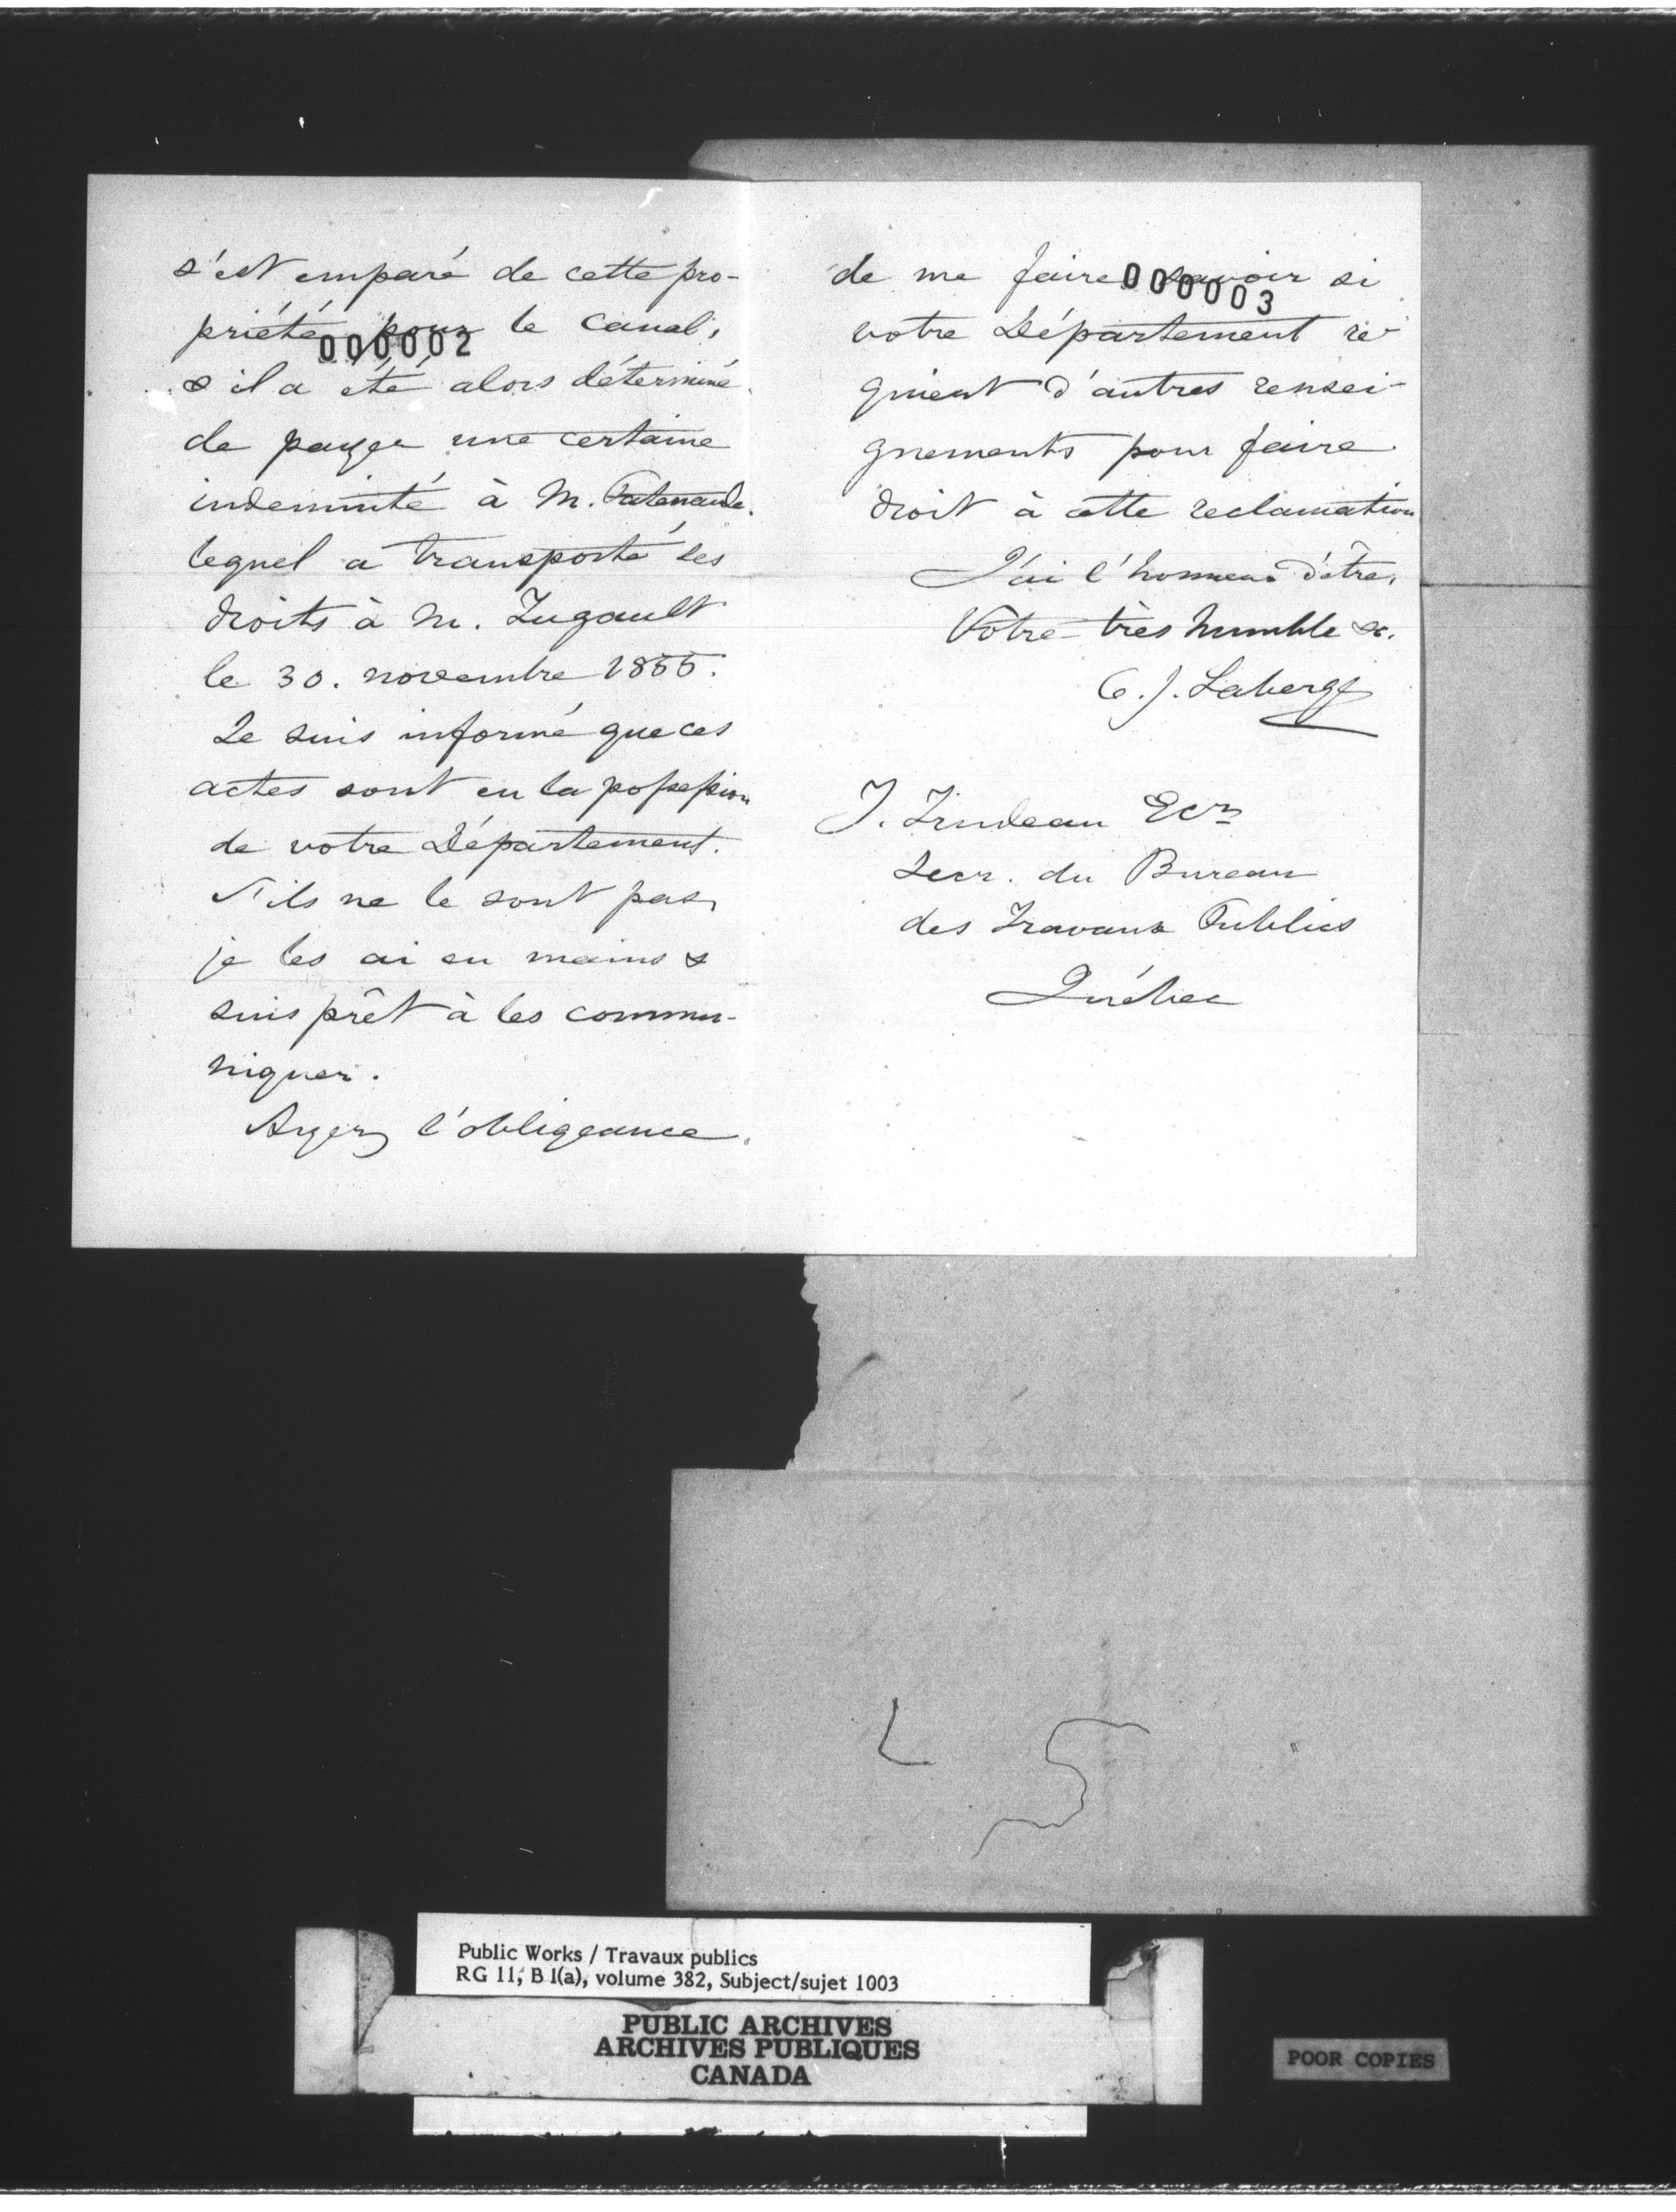 s'est emparé de cette pro-
priété pour le canal,
000002
& il a été alors déterminé
de payer une certaine
indemnité à M. Patenaude.
lequel a transporté ses
droits à M. Lugault
le 30. novembre 1855.
Je suis informé que ces
actes sont en la possession
de votre Département.
S'ils ne le sont pas,
je les ai en mains &
suis prêt à les commu-
niquer.
Ayez l'obligeance
de me faire savoir si
000003
votre Département re-
quient d'autres rensei-
gnements pour faire
droit à cette reclamation
J'ai l'honneur d'être,
Votre très humble &c.
C. J. Laberge
T. Trudeau Ecr
Secr. du Bureau
des Travaux Publics
Québec
L S
Public Works / Travaux publics
RG 11, B 1(a), volume 382, Subject/sujet 1003
PUBLIC ARCHIVES
ARCHIVES PUBLIQUES
CANADA
POOR COPIES